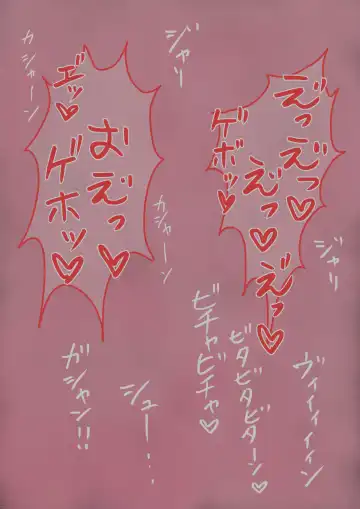 ジャリ
えっえっ♥
えっ♥
えっ♥
ゲボッ♥
ジャリ
ヴィイィイィン
ビタビタビターン♥
ビチャビチャ♥
おえっ♥
ゲホッ♥
エッ♥
カシャーン
カシャーン
シュー…
ガシャン!!